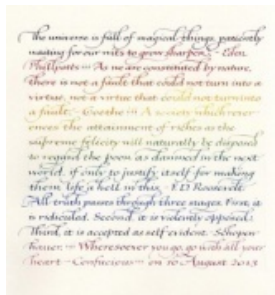 The universe is full of magical things patiently
waiting for our wits to grow sharper. - Eden
Phillpotts ~ As we are constituted by nature,
there is not a fault that could not turn into a
virtue, not a virtue that could not turn into
a fault. - Goethe ~ A society which rever-
ences the attainment of riches as the
supreme felicity will naturally be disposed
to regard the poor as damned in the next
world, if only to justify itself for making
their life a hell in this. - F D Roosevelt
All truth passes through three stages. First, it
is ridiculed. Second, it is violently opposed.
Third, it is accepted as self evident. Schopen-
hauer. ~ Wheresoever you go, go with all your
heart - Confucius ~ on 10 August 2013